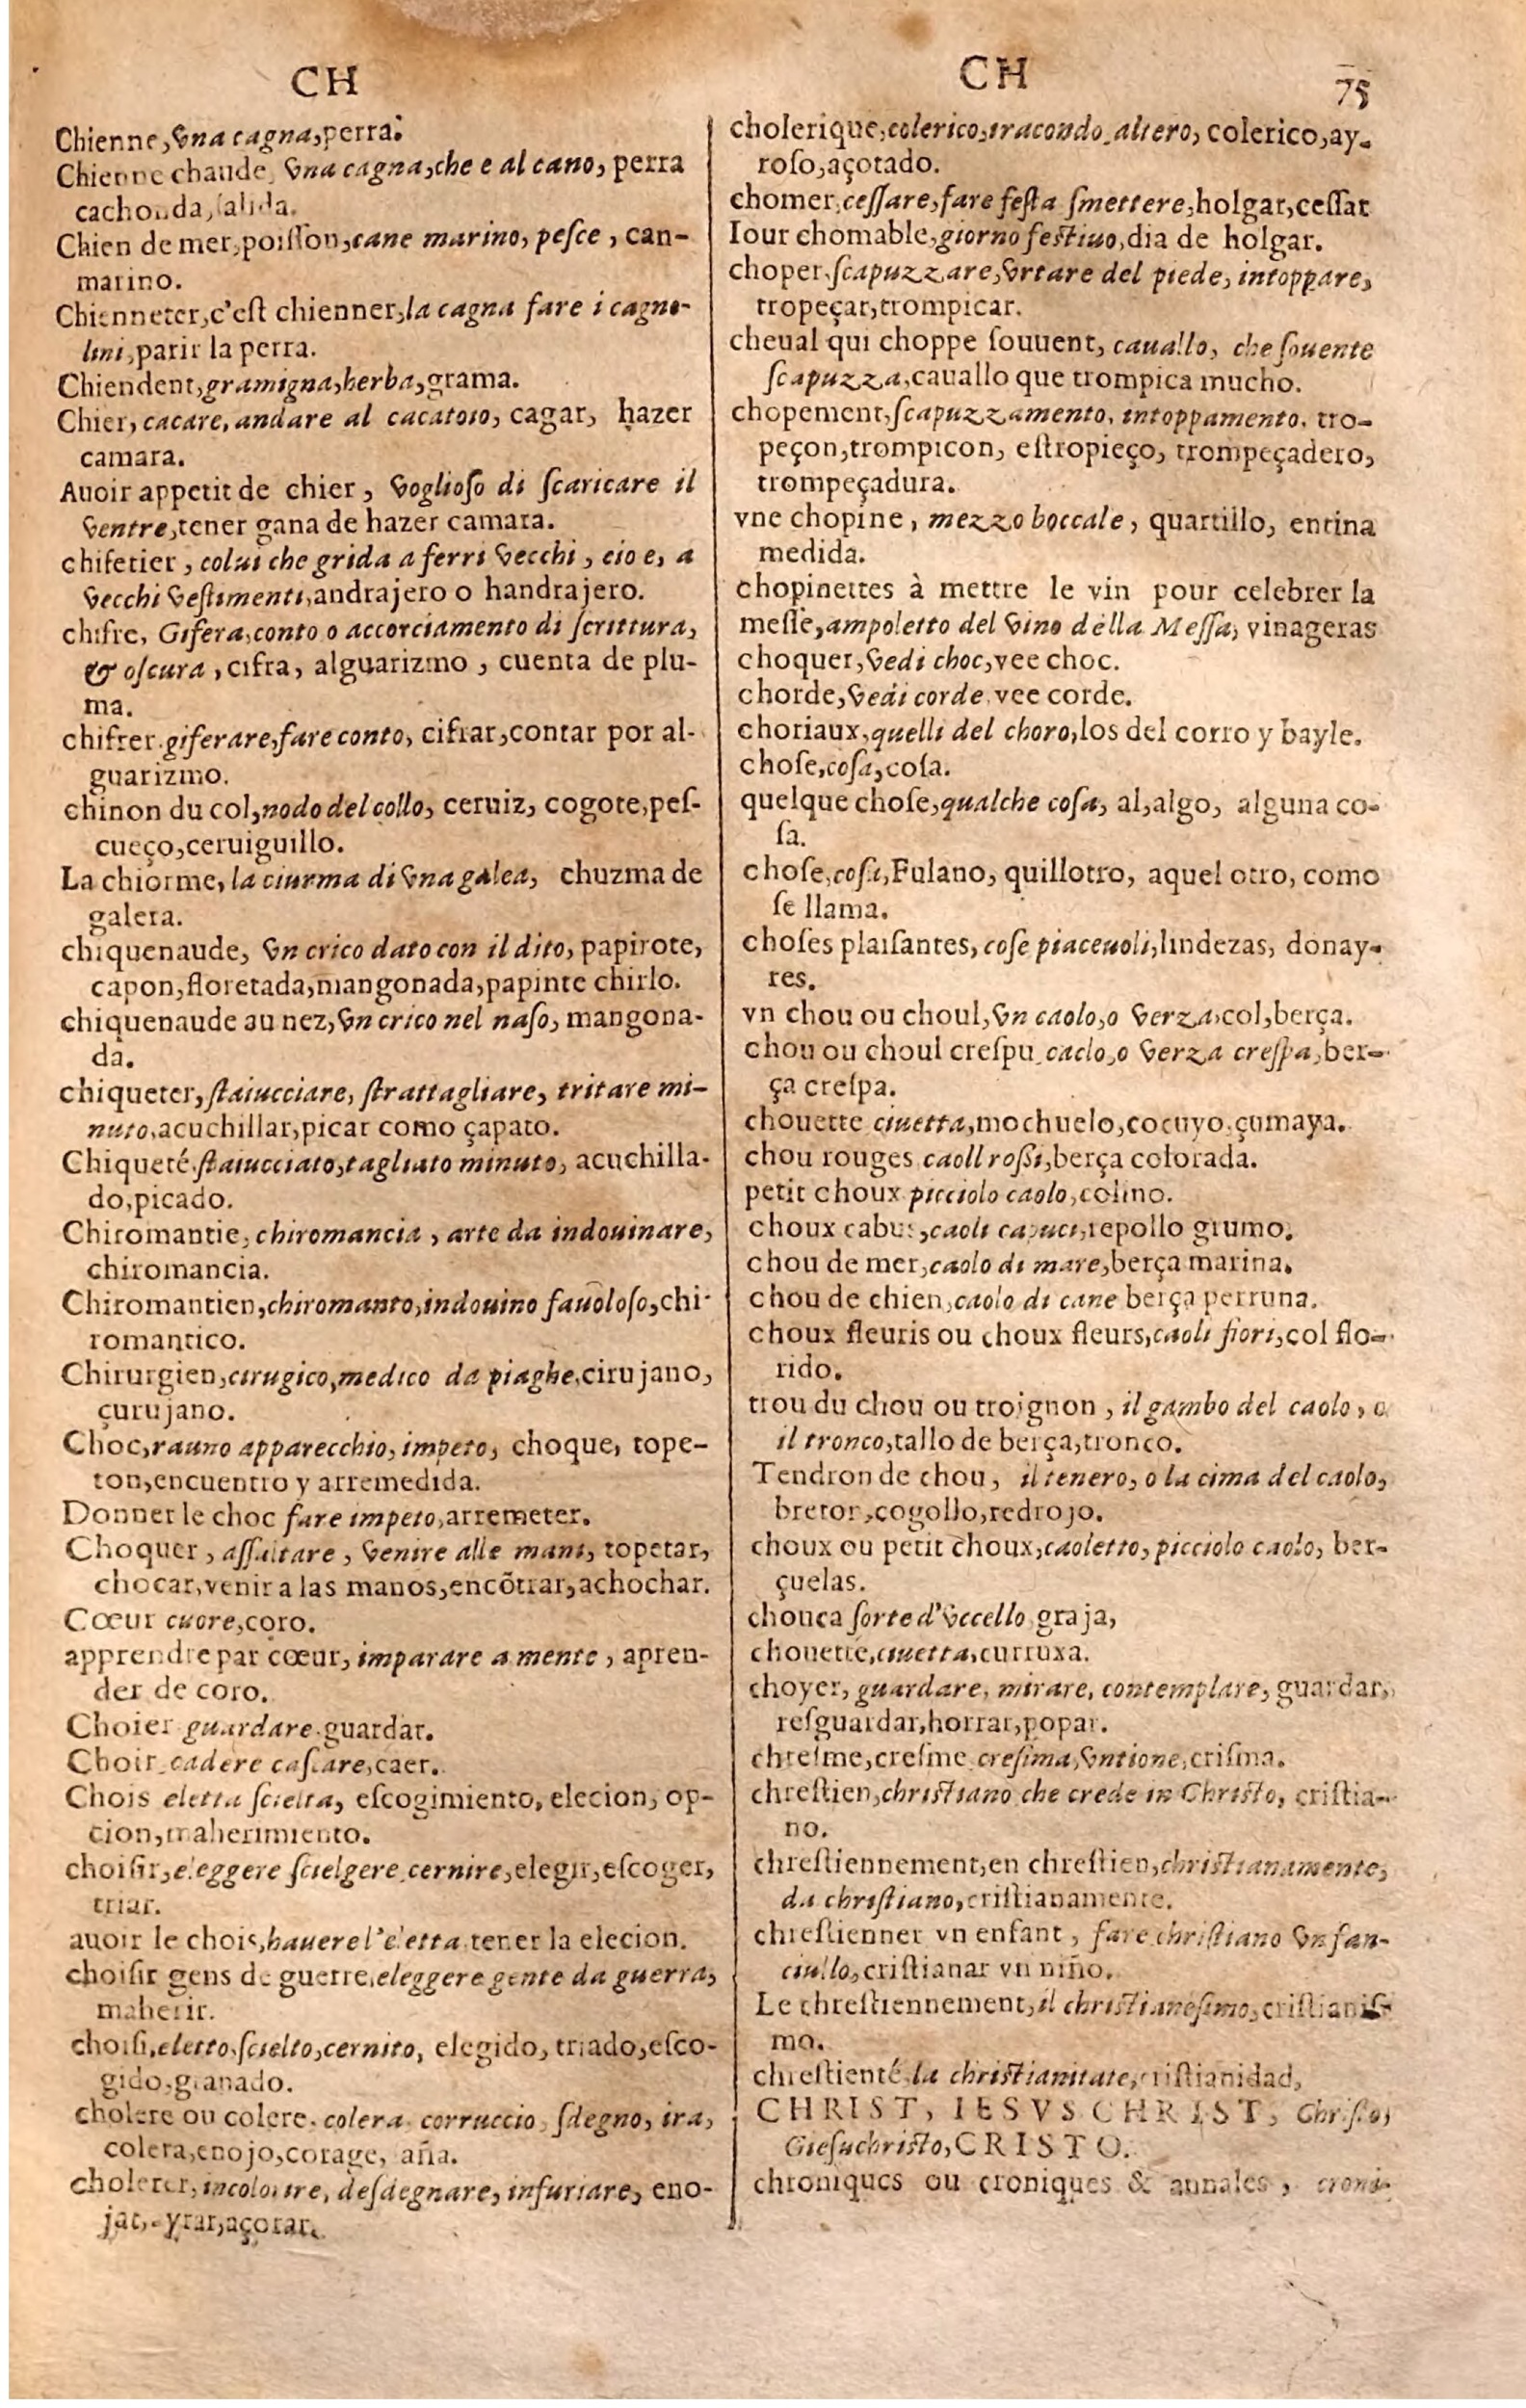 CH
Chienne, vna cagna, perra.
Chienne chaude, vna cagna, che e al cano, perra
cachonda, salida.
Chien de mer, poiſſon, cane marino, peſce, can-
marino.
Chienneter, c'eſt chienner, la cagna fare i cagno-
lini, parir la perra.
Chiendent, gramigna, herba, grama.
Chier, cacare, andare al cacatoio, cagar, hazer
camara.
Auoir appetit de chier, voglioſo di ſcaricare il
ventre, tener gana de hazer camara.
chifetier, colui che grida a ferri vecchi, cio e, a
vecchi veſtimenti, andrajero o handrajero.
chifre, Gifera, conto o accorciamento di ſcrittura,
& oſcura, cifra, alguarizmo, cuenta de plu-
ma.
chifrer, giferare, fare conto, cifrar, contar por al-
guarizmo.
chinon du col, nodo del collo, ceruiz, cogote, peſ-
cueço, ceruiguillo.
La chiorme, la ciurma di vna galea, chuzma de
galera.
chiquenaude, vn crico dato con il dito, papirote,
capon, floretada, mangonada, papinte chirlo.
chiquenaude au nez, vn crico nel naſo, mangona-
da.
chiqueter, ſtaiucciare, ſtrattagliare, tritare mi-
nuto, acuchillar, picar como çapato.
Chiqueté, ſtaiucciato, tagliato minuto, acuchilla-
do, picado.
Chiromantie, chiromancia, arte da indouinare,
chiromancia.
Chiromantien, chiromanto, indouino fauoloſo, chi-
romantico.
Chirurgien, cirugico, medico da piaghe, cirujano,
çurujano.
Choc, rauno apparecchio, impeto, choque, tope-
ton, encuentro y arremedida.
Donner le choc fare impeto, arremeter.
Choquer, aſſaltare, venire alle mani, topetar,
chocar, venir a las manos, encõtrar, achochar.
Cœur cuore, coro.
apprendre par cœur, imparare a mente, apren-
der de coro.
Choier guardare, guardar.
Choir cadere caſcare, caer.
Chois eletta ſcielta, eſcogimiento, elecion, op-
cion, maherimiento.
choiſir, eleggere ſcielgere, cernire, elegir, eſcoger,
triar.
auoir le chois, hauere l'eletta, tener la elecion.
choiſir gens de guerre, eleggere gente da guerra,
maherir.
choiſi, eletto, ſcielto, cernito, elegido, triado, eſco-
gido, granado.
cholere ou colere, colera, corruccio, ſdegno, ira,
colera, enojo, corage, aña.
cholerer, incolorire, deſdegnare, infuriare, eno-
jar, ayrar, açorar.
CH 75
cholerique, colerico, iracondo, altero, colerico, ay-
roſo, açotado.
chomer, ceſſare, fare feſta ſmettere, holgar, ceſſar
Iour chomable, giorno feſtiuo, dia de holgar.
choper, ſcapuzzare, vrtare del piede, intoppare,
tropeçar, trompicar.
cheual qui choppe ſouuent, cauallo, che ſouente
ſcapuzza, cauallo que trompica mucho.
chopement, ſcapuzzamento, intoppamento, tro-
peçon, trompicon, eſtropieço, trompeçadero,
trompeçadura.
vne chopine, mezzo boccale, quartillo, entina
medida.
chopinettes à mettre le vin pour celebrer la
meſſe, ampoletto del vino della Meſſa, vinageras
choquer, vedi choc, vee choc.
chorde, vedi corde, vee corde.
choriaux, quelli del choro, los del corro y bayle.
choſe, coſa, coſa.
quelque choſe, qualche coſa, al, algo, alguna co-
ſa.
choſe, coſa, Fulano, quillotro, aquel otro, como
ſe llama.
choſes plaiſantes, coſe piaceuoli, lindezas, donay-
res.
vn chou ou choul, vn caolo, o verza, col, berça.
chou ou choul creſpu, caolo, o verza creſpa, ber-
ça creſpa.
chouette ciuetta, mochuelo, cocuyo, çumaya.
chou rouges caoli roſſi, berça colorada.
petit choux picciolo caolo, colino.
choux cabus, caoli capuci, repollo grumo.
chou de mer, caolo di mare, berça marina.
chou de chien, caolo di cane berça perruna.
choux fleuris ou choux fleurs, caoli fiori, col flo-
rido.
trou du chou ou troignon, il gambo del caolo, o
il tronco, tallo de berça, tronco.
Tendron de chou, il tenero, o la cima del caolo,
breton, cogollo, redrojo.
choux ou petit choux, caoletto, picciolo caolo, ber-
çuelas.
chouca ſorte d'vccello graja,
chouette, ciuetta, curruxa.
choyer, guardare, mirare, contemplare, guardar,
reſguardar, horrar, popar.
chreſme, creſme creſima, vntione, criſma.
chreſtien, chriſtiano che crede in Chriſto, criſtia-
no.
chreſtiennement, en chreſtien, chriſtianamente,
da chriſtiano, criſtianamente.
chreſtienner vn enfant, fare chriſtiano vn fan-
ciullo, criſtianar vn niño.
Le chreſtiennement, il chriſtianeſimo, criſtianiſ-
mo.
chreſtienté, la chriſtianitate, criſtianidad,
CHRIST, IESVS CHRIST, Chriſto,
Gieſuchriſto, CRISTO.
chroniques ou croniques & annales, croni-